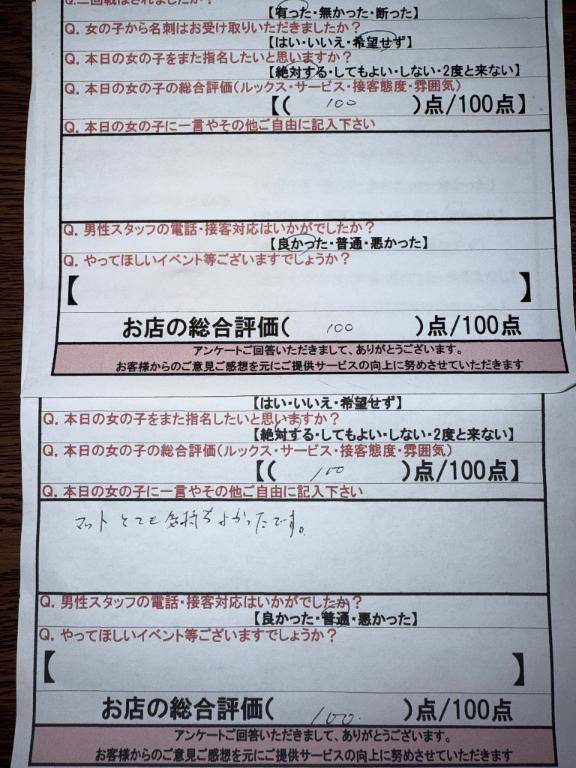 Q.二回戦はされましたか？
【有った・無かった・断った】
Q. 女の子から名刺はお受け取りいただきましたか？
【はい・いいえ・希望せず】
Q. 本日の女の子をまた指名したいと思いますか？
【絶対する・してもよい・しない・2度と来ない】
Q. 本日の女の子の総合評価(ルックス・サービス・接客態度・雰囲気)
【( 100 )点/100点】
Q. 本日の女の子に一言やその他ご自由に記入下さい
Q. 男性スタッフの電話・接客対応はいかがでしたか？
【良かった・普通・悪かった】
Q. やってほしいイベント等ございますでしょうか？
【 】
お店の総合評価( 100 )点/100点
アンケートご回答いただきまして、ありがとうございます。
お客様からのご意見ご感想を元にご提供サービスの向上に努めさせていただきます
【はい・いいえ・希望せず】
Q. 本日の女の子をまた指名したいと思いますか？
【絶対する・してもよい・しない・2度と来ない】
Q. 本日の女の子の総合評価(ルックス・サービス・接客態度・雰囲気)
【( 100 )点/100点】
Q. 本日の女の子に一言やその他ご自由に記入下さい
マット とても 気持ちよかったです。
Q. 男性スタッフの電話・接客対応はいかがでしたか？
【良かった・普通・悪かった】
Q. やってほしいイベント等ございますでしょうか？
【 】
お店の総合評価( 100. )点/100点
アンケートご回答いただきまして、ありがとうございます。
お客様からのご意見ご感想を元にご提供サービスの向上に努めさせていただきます